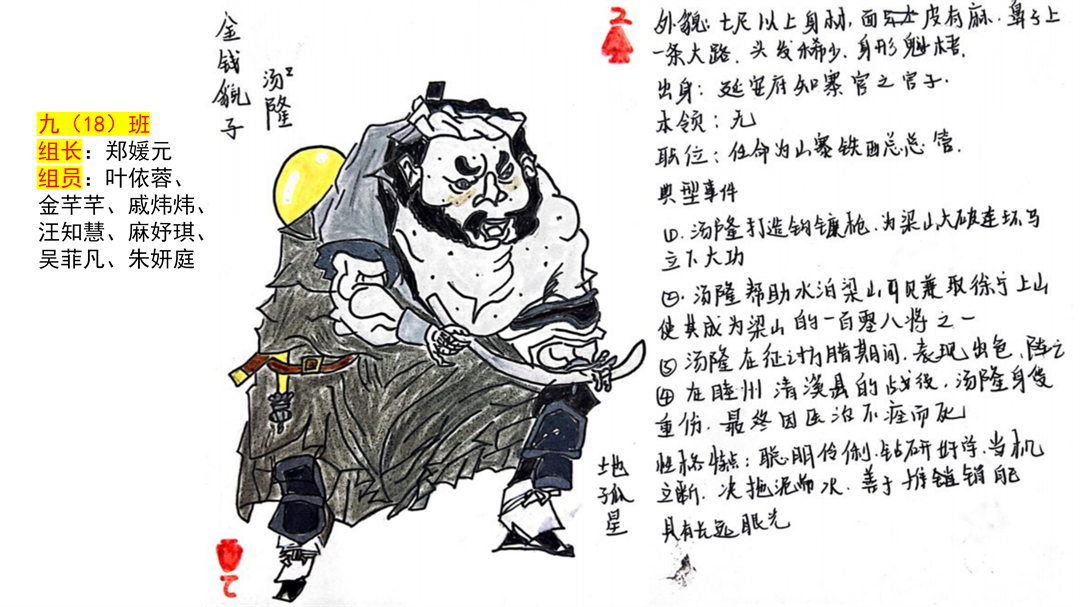 九（18）班
组长：郑媛元
组员：叶依蓉、
金芊芊、戚炜炜、
汪知慧、麻妤琪、
吴菲凡、朱妍庭
金钱貌子
汤隆
2
外貌：七尺以上身材，面 皮有麻．鼻子上
一条大路．头发稀少．身形魁梧．
出身：延安府知寨官之官子．
本领：无
职位：任命为山寨铁 总总管．
典型事件
①．汤隆打造钩镰枪．为梁山大破连环马
立下大功
②．汤隆帮助水泊梁山 取徐宁上山
使其成为梁山的一百零八将之一
③汤隆在征讨 腊期间．表现出色．阵亡
④在睦州清溪县的战役．汤隆身受
重伤．最终因医治不痊而死
性格特点：聪明伶俐．钻研好学．当机
立断．决拖泥 水．善于推 销 能
具有长远眼光
地孤星
2